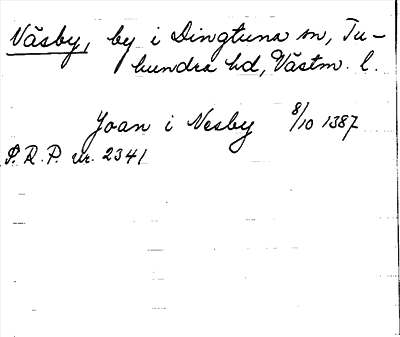 Väsby, by i Dingtuna sn, Tu-
hundra hd, Västm. l.
Joan i Nesby 8/10 1387
S.R.P. nr. 2341